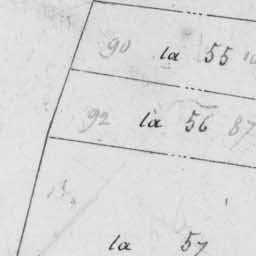 90 la 55
92 la 56 87
la 57